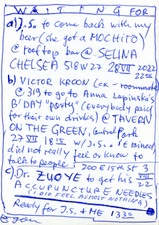 WAITING FOR
a) J.S. to come back with my
beer (she got a MOCHITO)
@ rooftop bar @ SELINA
CHELSEA 518 W 27 28 VII 2022
2200
b) VICTOR KROON (ex-roommate
@ 319 to go to Anna Lapinska's
B'DAY "party" (everybody paid
for their own drinks) @ TAVERN
ON THE GREEN, Central Park
27 VII 18 15 w/ J.S.
did not really feel or know to
talk to people. 200 E 15th St 3
c) Dr. ZUOYE to get his VIII
ACCUPUNCTURE NEEDLES 22
(I DID FEEL ALMOST NOTHING)
Ready for J.S. + ME 1330